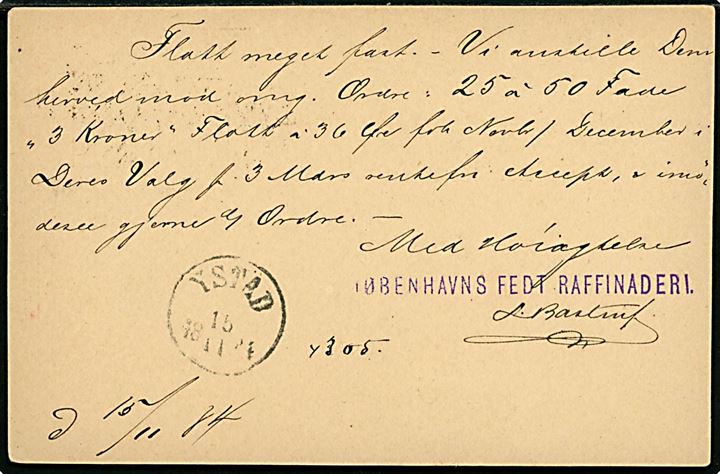 Flott meget fast. – Vi anstille Dem
herved mod omg. Ordre: 25 à 50 Fade
„3 Kroner" Flott à 36 Øre fob Novbr/December i
Deres Valg p. 3 Mdrs rentefri Accept, & imø-
desee gjerne Ordre. –
Med Høiagtelse
KØBENHAVNS FEDT RAFFINADERI.
YSTAD
15
18 11 84
4305.
d 15/11 84